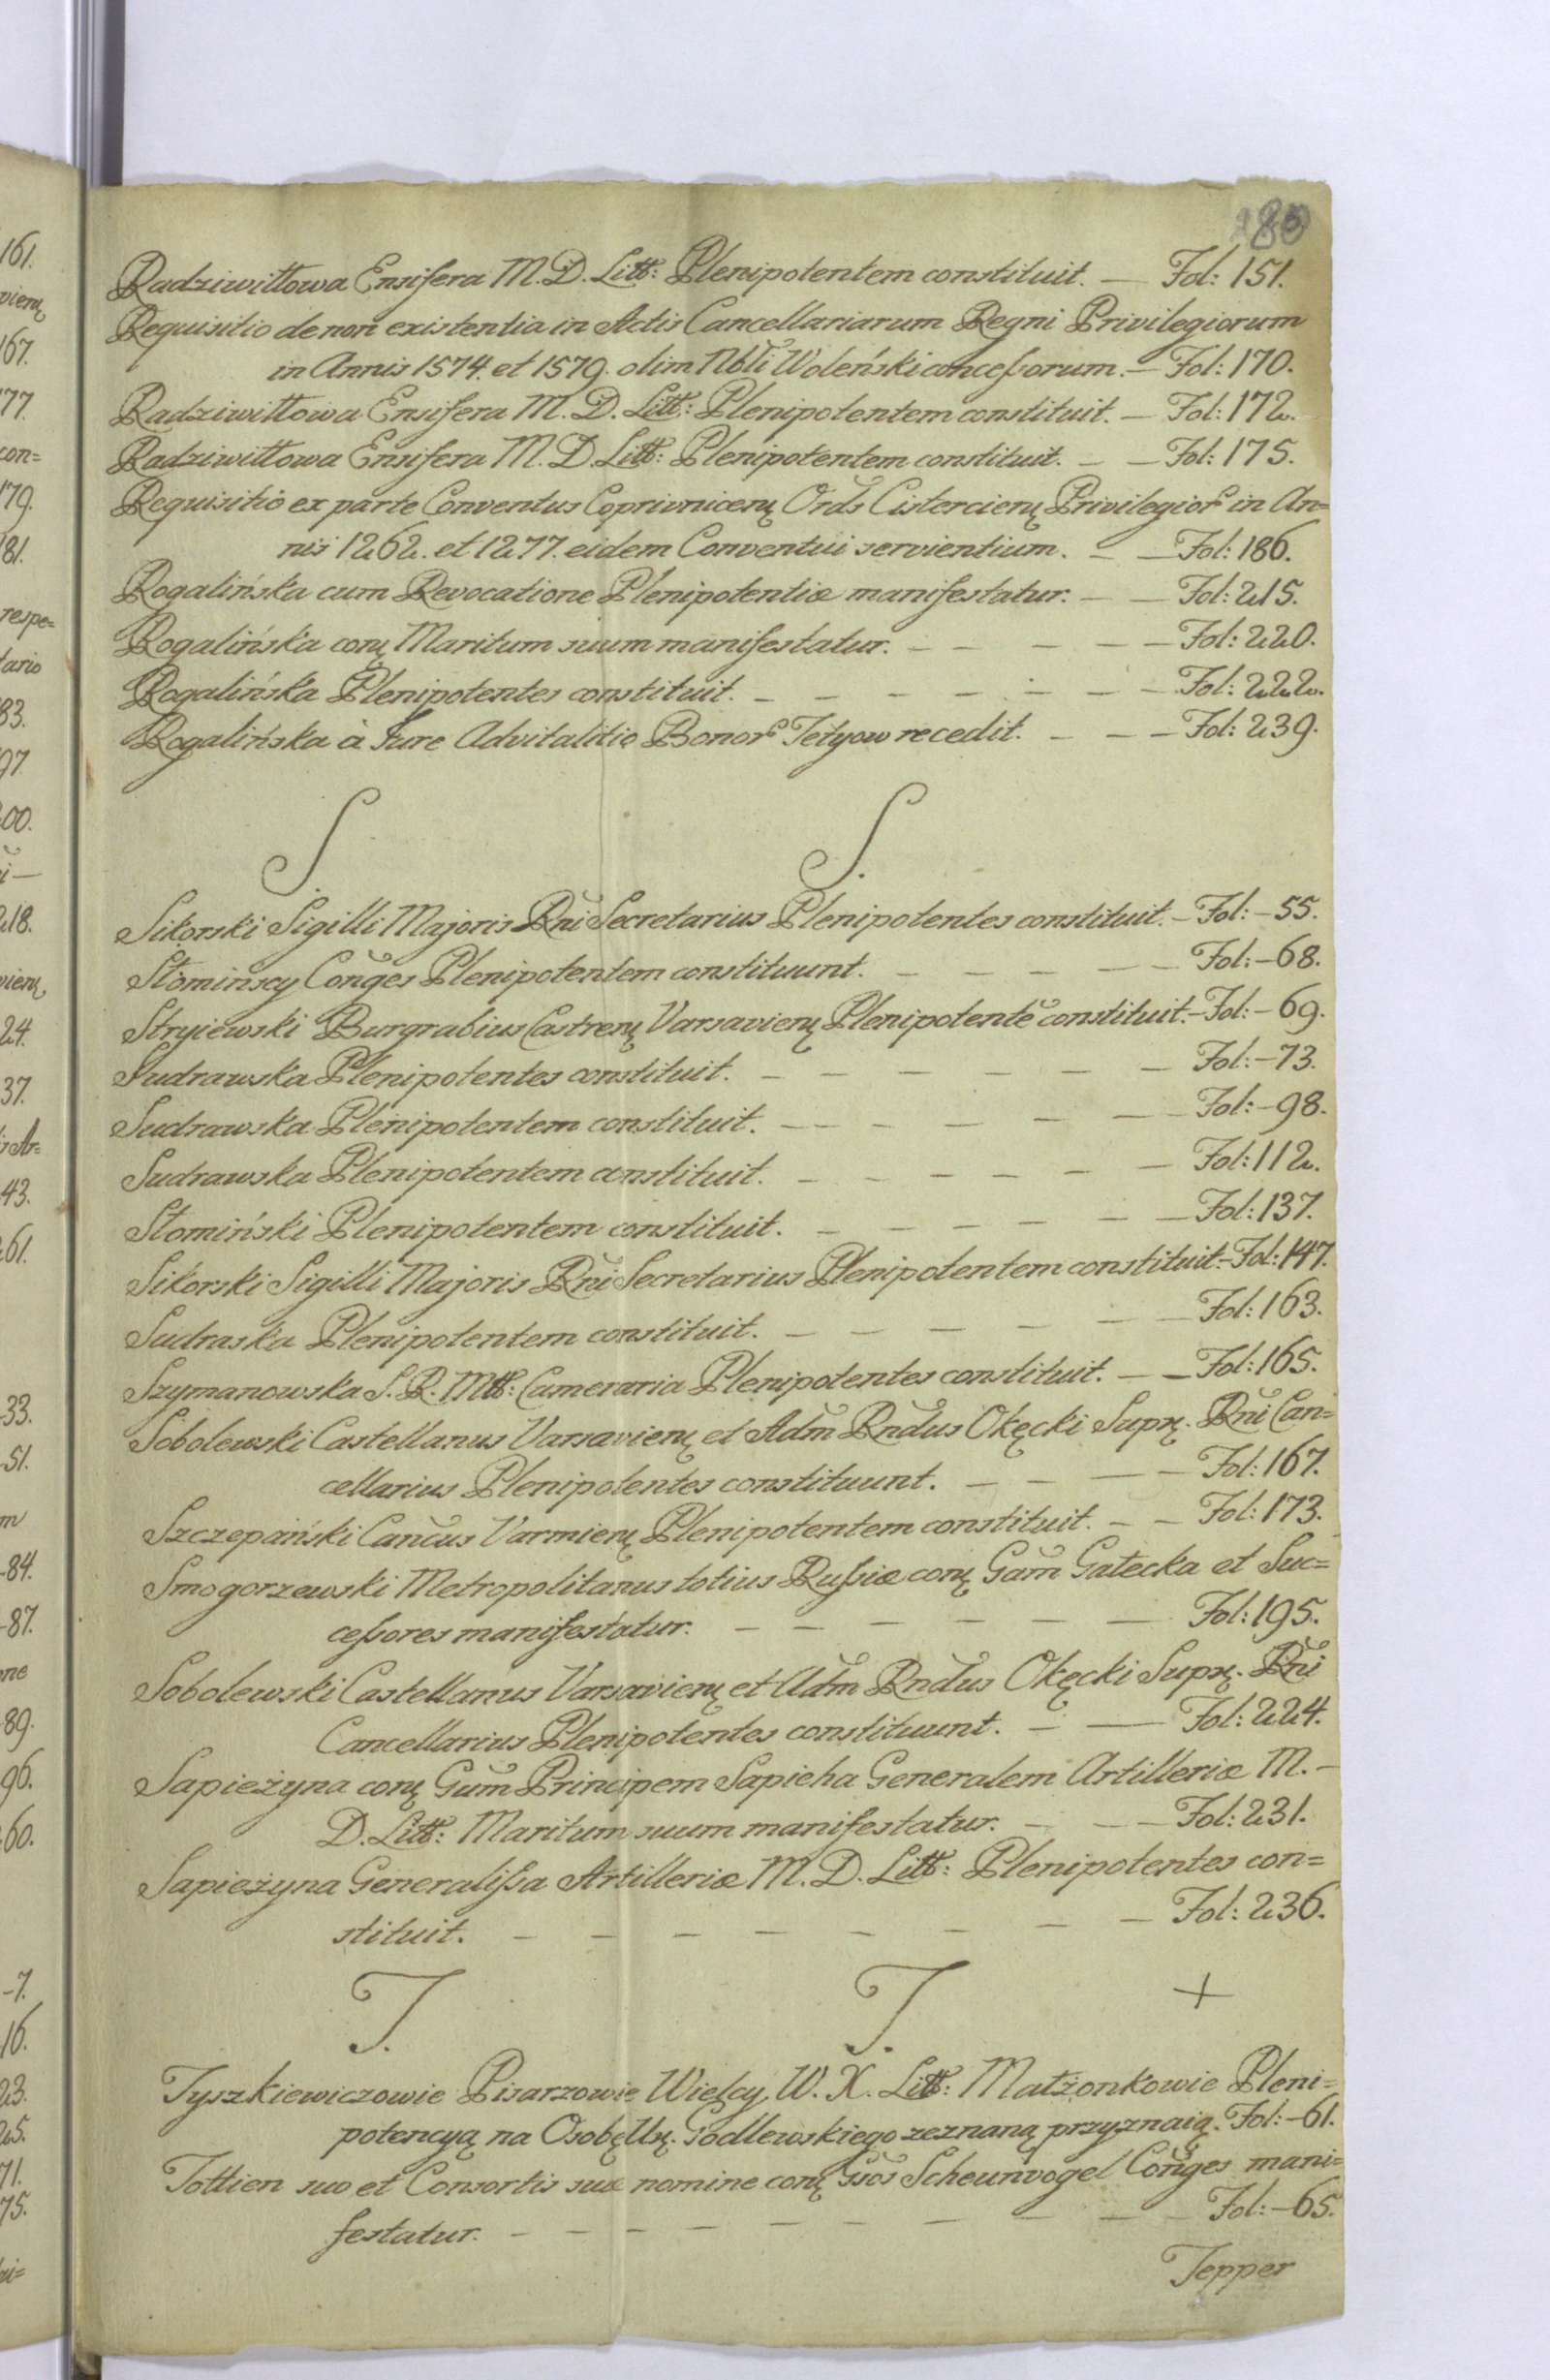 180
Radziwiłłowa Ensifera M. D. Litt: Plenipotentem constituit. — Fol: 151.
Requisitio de non existentia in Actis Cancellariarum Regni Privilegiorum
in Annis 1574. et 1579. olim Nbli Woleński concessorum. — Fol: 170.
Radziwiłłowa Ensifera M. D. Litt: Plenipotentem constituit. — Fol: 172.
Radziwiłłowa Ensifera M. D. Litt: Plenipotentem constituit. — — Fol: 175.
Requisitio ex parte Conventus Coprivnicen̨ Ords Cistercien̨ Privilegior in An=
nis 1262. et 1277. eidem Conventui servientium. — — Fol: 186.
Rogalińska cum Revocatione Plenipotentiæ manifestatur. — — Fol: 215.
Rogalińska con̨ Maritum suum manifestatur. — — — — — Fol: 220.
Rogalińska Plenipotentes constituit. — — — — — — — Fol: 222.
Rogalińska à Jure Advitalitio Bonor Tetyow recedit. — — — Fol: 239.
S. S.
Sikorski Sigilli Majoris Rni Secretarius Plenipotentes constituit. — Fol: — 55.
Słomińscy Conges Plenipotentem constituunt. — — — — — Fol: — 68.
Stryiewski Burgrabius Castren̨ Varsavien̨ Plenipotentē constituit. — Fol: — 69.
Sudrawska Plenipotentes constituit. — — — — — — Fol: — 73.
Sudrawska Plenipotentem constituit. — — — — — — Fol: — 98.
Sudrawska Plenipotentem constituit. — — — — — Fol: 112.
Słomiński Plenipotentem constituit. — — — — — — Fol: 137.
Sikorski Sigilli Majoris Rni Secretarius Plenipotentem constituit. — Fol: 147.
Sudraska Plenipotentem constituit. — — — — — — Fol: 163.
Szymanowska S. R. Mtt: Cameraria Plenipotentes constituit. — — Fol: 165.
Sobolewski Castellanus Varsavien̨ et Adm Rndus Okęcki Supr̨. Rni Can=
cellarius Plenipotentes constituunt. — — — — Fol: 167.
Szczepański Cancus Varmien̨ Plenipotentem constituit. — — Fol: 173.
Smogorzewski Metropolitanus totius Russiæ con̨ Gam Gałecka et Suc=
cessores manifestatur. — — — — — — Fol: 195.
Sobolewski Castellanus Varsavien̨ et Adm Rndus Okęcki Supr̨. Rni
Cancellarius Plenipotentes constituunt. — — Fol: 224.
Sapieżyna con̨ Gum Principem Sapieha Generalem Artilleriæ M. —
D. Litt: Maritum suum manifestatur. — — — Fol: 231.
Sapieżyna Generalissa Artilleriæ M. D. Litt: Plenipotentes con=
stituit. — — — — — — — — Fol: 236.
T. T. +
Tyszkiewiczowie Pisarzowie Wielcy W. X. Litt: Małżonkowie Pleni=
potencyą na Osobę Ur̨. Godlewskiego zeznaną przyznaią. Fol: — 61.
Tottien suo et Consortis suæ nomine con̨ Gsos Scheunvogel Conges mani=
festatur. — — — — — — — — — Fol: — 65.
Tepper
161.
vien̨
167.
177.
con=
179.
81.
respe=
tario
83.
97
200.
i —
218.
vien̨
24.
37.
is Ar=
43.
261.
33.
51.
m
84.
87.
one
89.
96.
260.
7.
16.
23.
25.
71.
75.
ni=